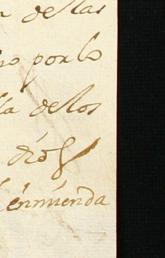 de las
por lo
de los
dio
enmienda